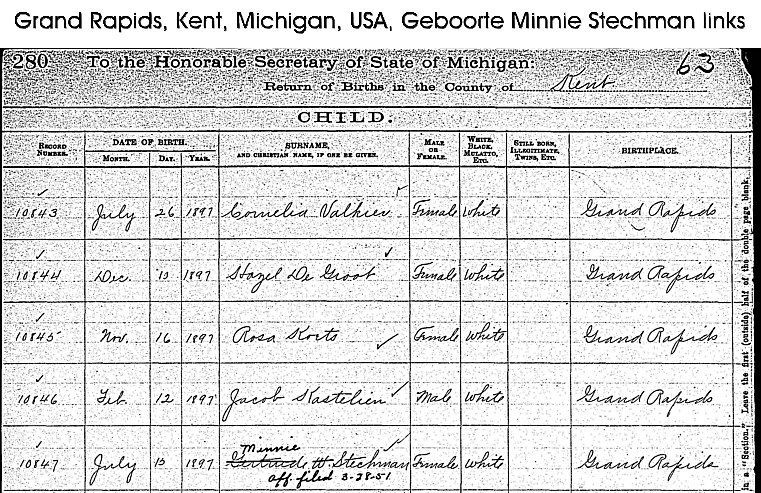 Grand Rapids, Kent, Michigan, USA, Geboorte Minnie Stechman links
280 To the Honorable Secretary of State of Michigan: 63
Return of Births in the County of Kent
CHILD.
RECORD NUMBER. DATE OF BIRTH. MONTH. DAY. YEAR. SURNAME, AND CHRISTIAN NAME, IF ONE BE GIVEN. MALE OR FEMALE. WHITE, BLACK, MULATTO, ETC. STILL BORN, ILLEGITIMATE, TWINS, ETC. BIRTHPLACE.
10843 July 26 1897 Cornelia Valkier Female White Grand Rapids
10844 Dec. 1897 Hazel De Groot Female White Grand Rapids
10845 Nov. 16 1897 Rosa Korts Female White Grand Rapids
10846 Feb. 12 1897 Jacob Kastelien Male White Grand Rapids
Minnie
10847 July 1897 Gertrude W. Stechman Female White Grand Rapids
aff. filed 3-28-51
in a "Section." Leave the first (outside) half of the double page blank.